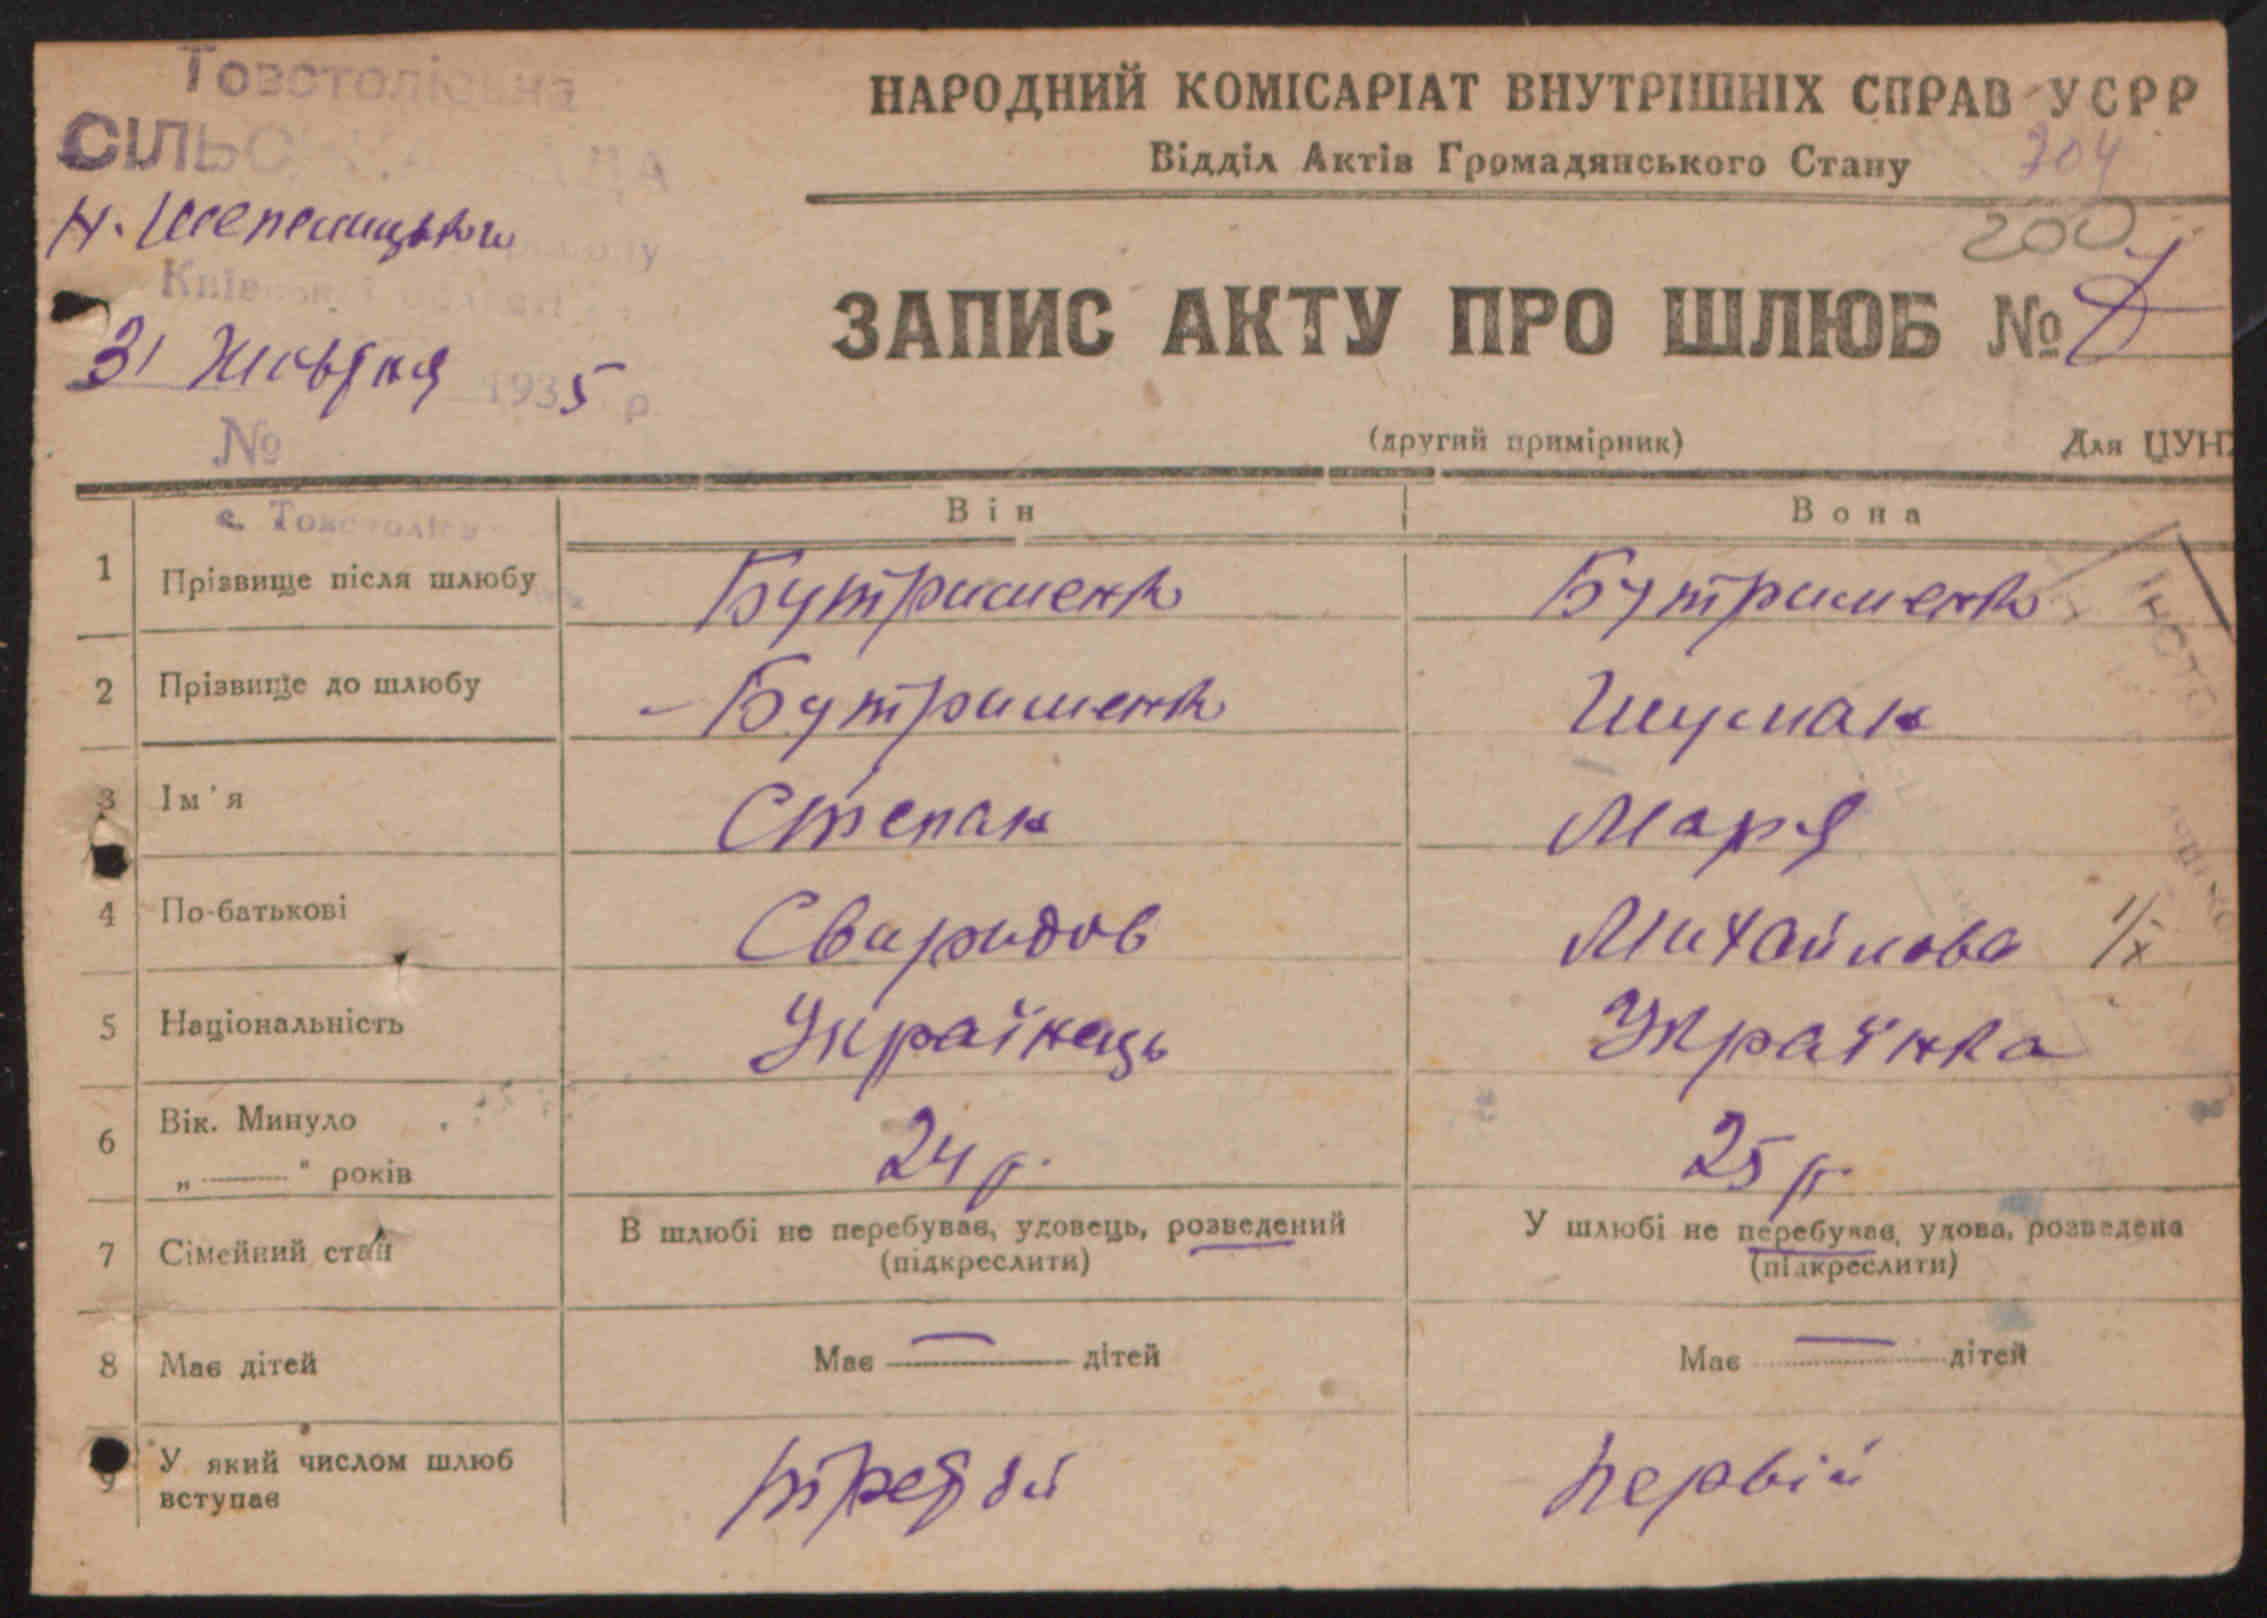 Товстоліська
СІЛЬСЬКА РАДА
Н. Шепелицького
району
Київської області
31 Жовтня 1935 р.
№
с. Товстоліси
НАРОДНИЙ КОМІСАРІАТ ВНУТРІШНІХ СПРАВ УСРР
Відділ Актів Громадянського Стану
204
200
ЗАПИС АКТУ ПРО ШЛЮБ №
(другий примірник) Для ЦУН
Він Вона
1 Прізвище після шлюбу Бутрименко Бутрименко
2 Прізвище до шлюбу Бутрименко Шумак
3 Ім'я Степан Марія
4 По-батькові Свиридов Михайлова
5 Національність Українець Українка
6 Вік. Минуло 24 р. 25 р.
„ " років
7 Сімейний стан В шлюбі не перебуває, удовець, розведений У шлюбі не перебуває, удова, розведена
(підкреслити) (підкреслити)
8 Має дітей Має — дітей Має — дітей
9 У який числом шлюб вступає Третій Первій